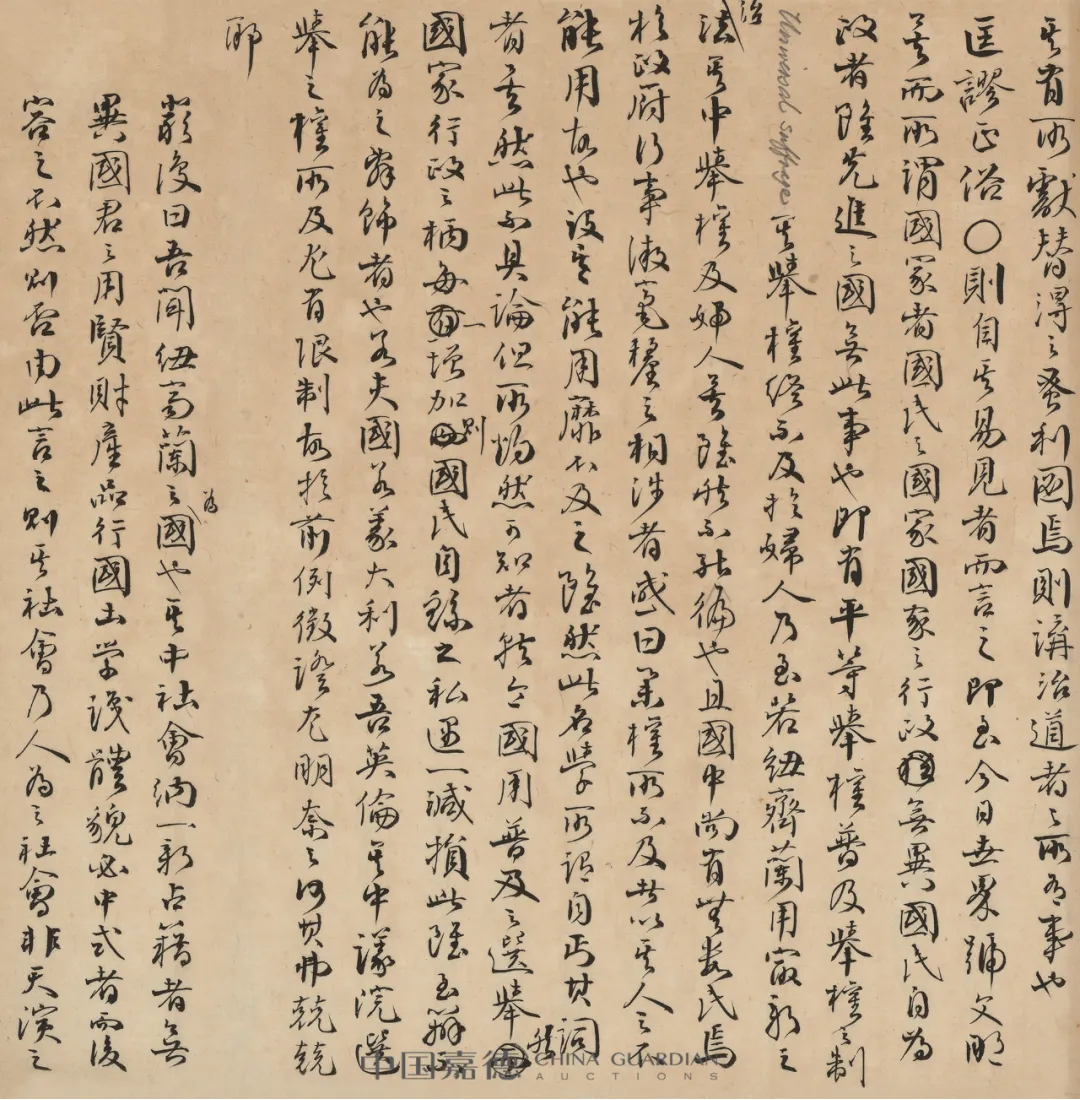 其有所獻替得之蚤利國焉則講治道者之所有事也
匡謬正俗〇則自其易見者而言之即至今日世界號文明
矣而所謂國家者國民之國家國家之行政無異國民自為
政者雖先進之國無此事也即有平等舉權普及舉權之制
Universal suffrage 其舉權終不及於婦人乃至若紐齊蘭用最新之
治法其中舉權及婦人矣雖然不能徧也且國中尚有無數民焉
於政府行事漠毫釐之相涉者或曰業權所不及者以其人之不
能用故也設其能用靡不及之雖然此名學所謂自丐其詞
者矣然此不具論但所灼然可知者就令國用普及之選舉然
國家行政之柄每一增加則國民自繇之私區一減損此雖至辯不
能為之解飾者也若夫國若義大利若吾英倫其中議院選
舉之權所及尤有限制故於前例徵證尤明奈之何其弗兢兢
耶
嚴復曰吾聞紐芬蘭之為國也其中社會納一新占籍者無
異國君之用賢財產品行國土學識體貌必中式者而後
容之不然則否由此言之則其社會乃人為之社會非天演之
中国嘉德 CHINA GUARDIAN
AUCTIONS